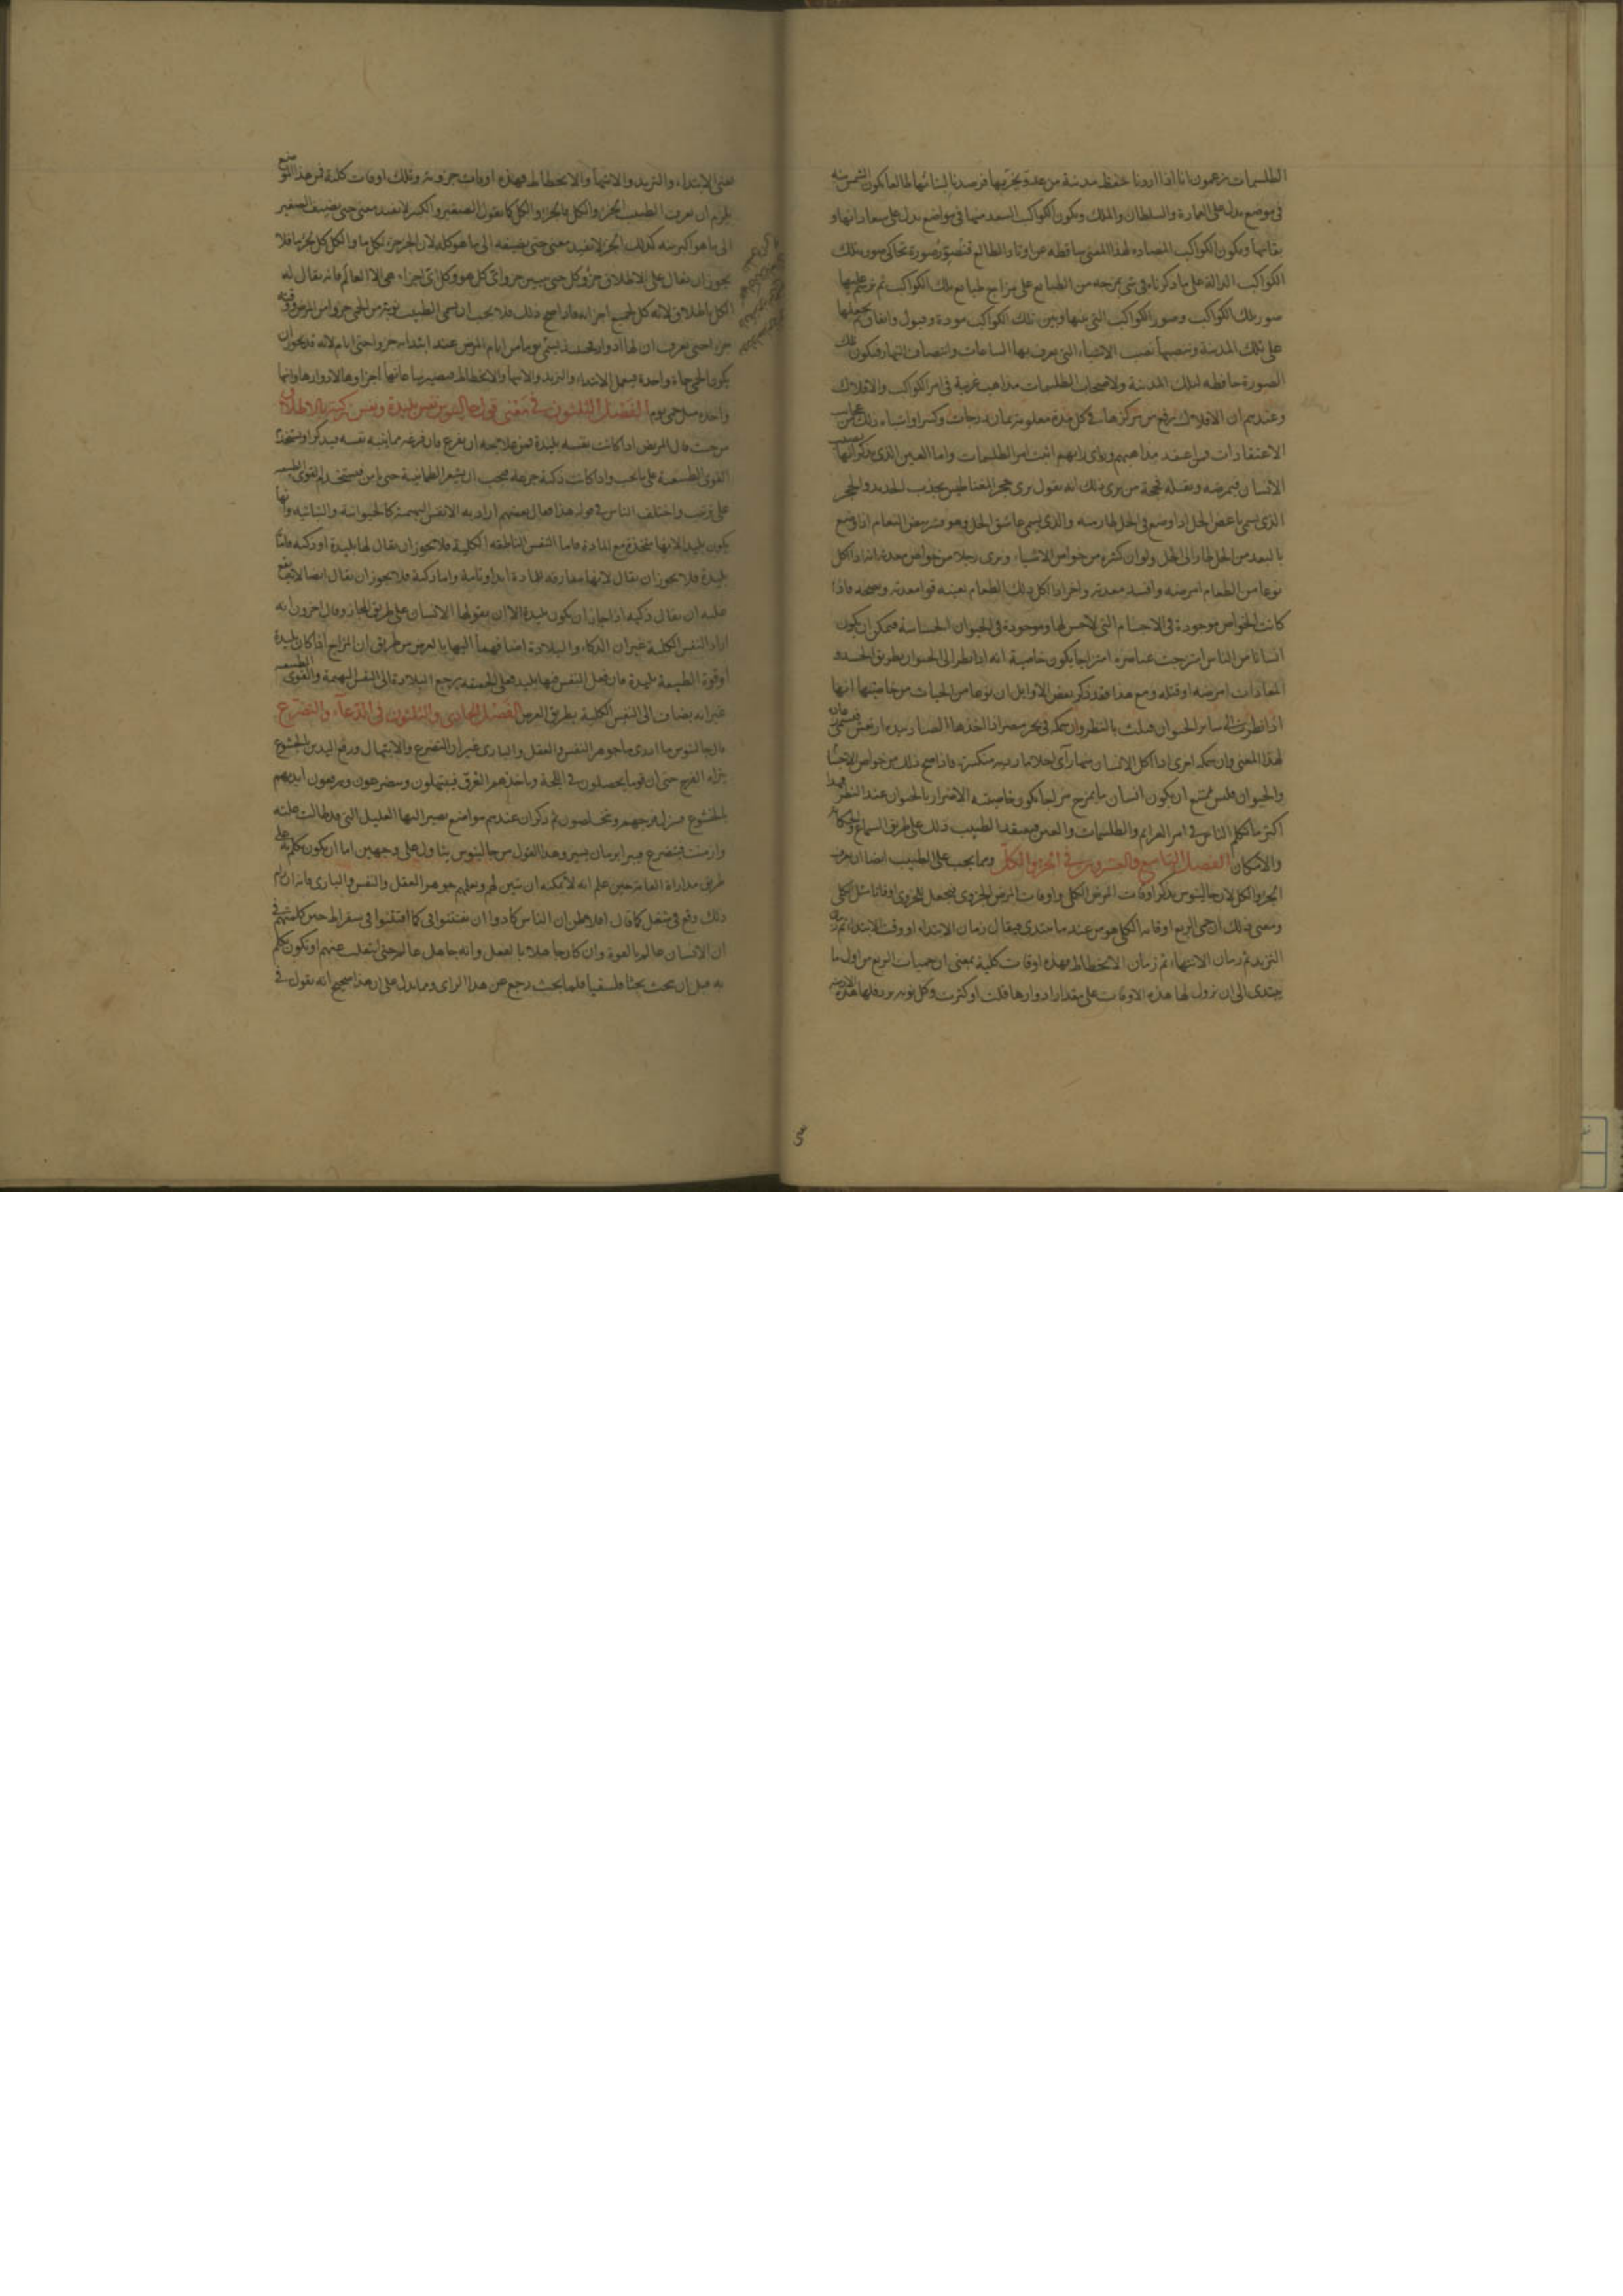 الطلسمات يزعمون انا اذا اردنا حفظ مدينة من عدو يخربها فرصدنا لبنائها طالعا يكون الشمس منه
في موضع يدل على العمارة والسلطان والملك ويكون الكواكب السعد منها في مواضع يدل على سعاداتها و
بقائها ويكون الكواكب المضاده لهذا المعنى ساقطه عن اوتاد الطالع فنصور صورة تحاكي صور تلك
الكواكب الدالة على ما ذكرناه في شي يمزجه من الطبايع على مزاج طبايع تلك الكواكب ثم نرسم عليها
صور تلك الكواكب وصور الكواكب التي بينها وبين تلك الكواكب مودة وقبول واتفاق ويجعلها
على تلك المدينة وتنصبها نصب الاشياء التي يعرف بها الساعات وانتصاف النهار فيكون تلك
الصورة حافظه لتلك المدينة ولاصحاب الطلسمات مذاهب غريبة في امر الكواكب والافلاك
وعندهم ان الافلاك ترفع من مركزها في كل مدة معلومة ثمان درجات وكسر او اشباه ذلك من
الاعتقادات فمن اعتقد مذاهبهم وراى رايهم اثبت امر الطلسمات واما العين الذي يذكر انها تصيب
الانسان فيمرضه ويقتله فحجة من يرى ذلك انه يقول نرى حجر المغناطيس يجذب الحديد والحجر
الذي يسمى باغض الخل اذا وضع في الخل طار منه والذي يسمى عاشق الخل وهو قشر بيض النعام اذا وضع
بالبعد من الخل طار الى الخل ولوان كثيرة من خواص الاشياء ونرى رجلا من خواص معدته انه اذا اكل
نوعا من الطعام امرضه وافسد معدته واخر اذا اكل ذلك الطعام بعينه قوا معدته وصححه فاذا
كانت الخواص موجودة في الاجسام التي لا حس لها وموجودة في الحيوان الحساسة فيمكن ان يكون
انسانا من الناس امتزجت عناصره امتزاجا يكون خاصية انه اذا نظر الى الحيوان بطريق الحسد و
المعادات امرضه او قتله ومع هذا فقد ذكر بعض الاوايل ان نوعا من الحيات من خاصيتها انها
اذا نظرت الى ساير الحيوان هلك بالنظر وان سمكة في بحر مصر اذا اخذها الصياد بيده ارتعش
لهذا المعنى وان سمكة اخرى اذا اكل الانسان منها رآى احلاما ردية منكسرة فاذا صح ذلك من خواص الاجسام
والحيوان فليس يمتنع ان يكون انسان ما يمزج مزاجا يكون خاصيته الاضرار بالحيوان عند النظر فهذا
اكثر ما تكلم الناس في امر العزايم والطلسمات والعين فيعتقد الطبيب ذلك على طريق السماع والحكاية
والامكان الفصل التاسع والعشرون في الجزو والكل ومما يجب على الطبيب ايضا ان يعرف
الجزو والكل لان جالينوس يذكر اوقات المرض الكلي واوقات المرض الجزوي فيجعل للجزوي اوقاتا مثل الكلي
ومعنى ذلك ان حمى الربع اوقاتها الكلي هو من عند ما يبتدي فيقال زمان الابتداء او وقت الابتداء ثم زمان
التزيد ثم زمان الانتهاء ثم زمان الانحطاط فهذه اوقات كلية بمعنى ان حميات الربع من اول ما
يبتدي الى ان تزول لها هذه الاوقات على مقدار ادوارها قلت او كثرت وكل نوبة ترد فلها هذه الازمنة
يعني الابتداء والتزيد والانتهاء والانحطاط فهذه اوقات جزوية وتلك اوقات كلية فمن هذا الموضع
يلزم ان يعرف الطبيب الجزو والكل فالجزو والكل كما يقول الصغير والكبير لا يفيد معنى حتى يضيف الصغير
الى ما هو اكبر منه كذلك الجزو لا يفيد معنى حتى يضيفه الى ما هو كله لان الجزو جزو لكل ما والكل كل لجزو ما فلا
يجوز ان يقال على الاطلاق جزو وكل حتى يبين جزو اي كل هو وكل اي اجزاء هي الا العالم فانه يقال له
الكل باطلاق لانه كل لجميع اجزائه فاذا صح ذلك فلا يجب ان يسمى الطبيب نوبة من الحمى جزوا من المرض
جزوا حتى يعرف ان لها ادوارا فحينئذ يسمى يوما من ايام المرض عند ابتدائه جزوا حتى ايام لانه قد يجوز ان
يكون الحمى حماة واحدة فيحمل الابتداء والتزيد والانتهاء والانحطاط فيصير ساعاتها اجزاوها لا ادوارها وانها
واحدة مثل حمى يوم الفصل الثلثون في معنى قول جالينوس نفس بليدة ونفس زكية بالاطلاق
من حيث قال المريض اذا كانت نفسه بليدة
القوى الطبيعية على ما يجب واذا كانت ذكية جزعة فيجب ان يشعر الطمانينة حتى يامن فيستخدم القوى الطبيعية
على ترتيب واختلف الناس في قوله هذا فقال بعضهم اراد به الانفس البهيمية كالحيوانية والنباتية وانها
يكون بليدا لانها متحدة مع المادة فاما النفس الناطقة الكلية فلا يجوز ان يقال لها بليدة او ذكية فاما
بليدة فلا يجوز ان يقال لانها مفارقة للمادة ابدا وتامة واما ذكية فلا يجوز ان يقال ايضا لانه يقع
عليه ان يقال ذكية اذا جاز ان يكون بليدة الا ان يقولها الانسان على طريق المجاز وقال اخرون انه
اراد النفس الكلية غير ان الذكاء والبلادة اضافهما اليها بالعرض من طريق ان المزاج اذا كان بليدة
او قوة الطبيعة بليدة فان فعل النفس فيها بليد فعلى الحقيقة يرجع البلادة الى النفس البهيمة والقوى الطبيعية
غير انه يضاف الى النفس الكلية بطريق العرض الفصل الحادي والثلثون في الدعاء والتضرع
قال جالينوس ما ادري ما جوهر النفس والعقل والباري غير ان التضرع والابتهال ورفع اليدين بالخشوع
نراه الفرج حتى ان قوما يحصلون في اللجة وياخذهم الغرق فيبتهلون ويتضرعون ويرفعون ايديهم
بالخشوع فينزل فرجهم ويتخلصون ثم ذكر ان عندهم مواضع يصير اليها العليل التي قد طالت علته
وازمنت فيتضرع فيبرا بزمان يسير وهذا القول من جالينوس يتاول على وجهين اما ان يكون تكلم به على
طريق مداراة العامة حين علم انه لا يمكنه ان يبين لهم ويعلمهم جوهر العقل والنفس والباري فانه ان رام
ذلك وقع في شغل كما قال افلاطن ان الناس كادوا ان يفتتنوا في كما افتتنوا في سقراط حين كلمتهم في
ان الانسان عالم بالقوة وان كان جاهلا بالفعل وانه جاهل عالم حتى اشغلت عنهم او يكون تكلم
به قبل ان يبحث بحثا فلسفيا فلما بحث رجع عن هذا الراى ومما يدل على ان هذا صحيح انه يقول في